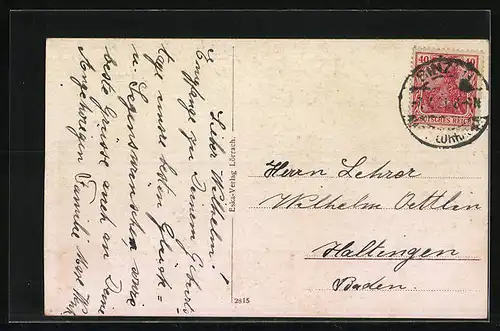 Lieber Wilhelm!
Empfange zu Deinem Geburts-
tage unsere besten Glück=
u. Segenswünschen, sowie
beste Grüsse auch an Deine
Angehörigen Familie
Eska-Verlag Lörrach.
2815
40 40
DEUTSCHES REICH
Herrn Lehrer
Wilhelm Oettlin
Haltingen
Baden.